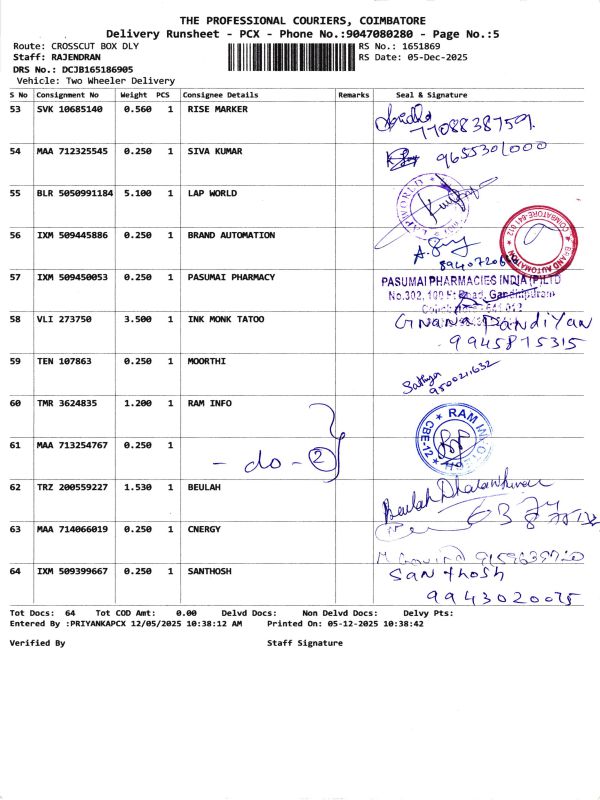 THE PROFESSIONAL COURIERS, COIMBATORE
Delivery Runsheet - PCX - Phone No.:9047080280 - Page No.:5
Route: CROSSCUT BOX DLY RS No.: 1651869
Staff: RAJENDRAN RS Date: 05-Dec-2025
DRS No.: DCJB165186905
Vehicle: Two Wheeler Delivery
S No Consignment No Weight PCS Consignee Details Remarks Seal & Signature
53 SVK 10685140 0.560 1 RISE MARKER
7708838759
54 MAA 712325545 0.250 1 SIVA KUMAR
9655301000
55 BLR 5050991184 5.100 1 LAP WORLD
LAPWORLD
56 IXM 509445886 0.250 1 BRAND AUTOMATION
BRAND AUTOMATION COIMBATORE-641 012
57 IXM 509450053 0.250 1 PASUMAI PHARMACY
PASUMAI PHARMACIES INDIA (P) LTD
No.302, 100 Ft Road, Gandhipuram
58 VLI 273750 3.500 1 INK MONK TATOO
Gnana Pandiyan
9945815315
59 TEN 107863 0.250 1 MOORTHI
Sathya
9500211632
60 TMR 3624835 1.200 1 RAM INFO
RAM INFO CBE-12
61 MAA 713254767 0.250 1
- do - 2
62 TRZ 200559227 1.530 1 BEULAH
Beulah
63 MAA 714066019 0.250 1 CNERGY
64 IXM 509399667 0.250 1 SANTHOSH
Santhosh
9943020075
Tot Docs: 64 Tot COD Amt: 0.00 Delvd Docs: Non Delvd Docs: Delvy Pts:
Entered By :PRIYANKAPCX 12/05/2025 10:38:12 AM Printed On: 05-12-2025 10:38:42
Verified By Staff Signature